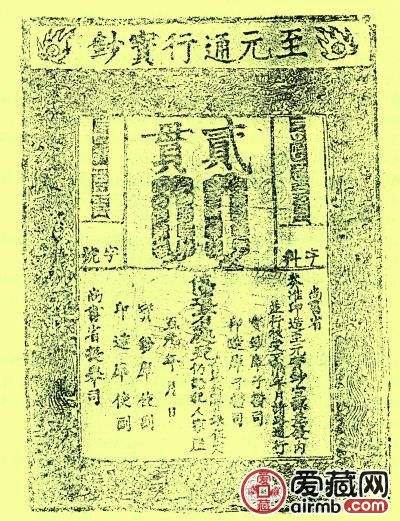 至元通行寶鈔
貳貫
字料
字號
尚書省
奏准印造至元寶鈔宣課差役內
並行收受不限年月諸路通行
寶鈔庫子攢司
印造庫子攢司
偽造者處死
仍給犯人家產
至元 年 月 日
寶鈔庫使副
印造庫使副
尚書省提舉司
爱藏网
airmb.com